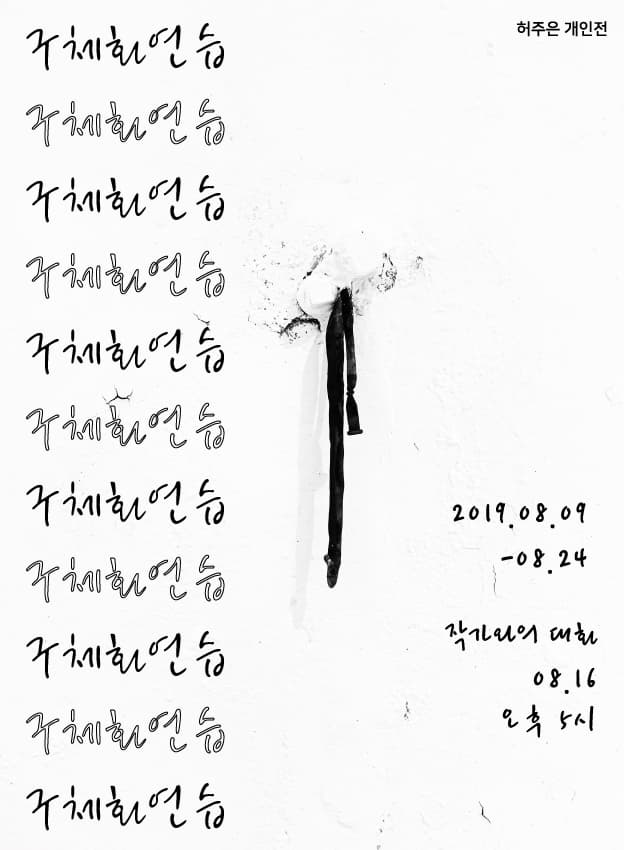 허주은 개인전
구체화연습
구체화연습
구체화연습
구체화연습
구체화연습
구체화연습
구체화연습
구체화연습
구체화연습
구체화연습
구체화연습
2019.08.09
-08.24
작가와의 대화
08.16
오후 5시